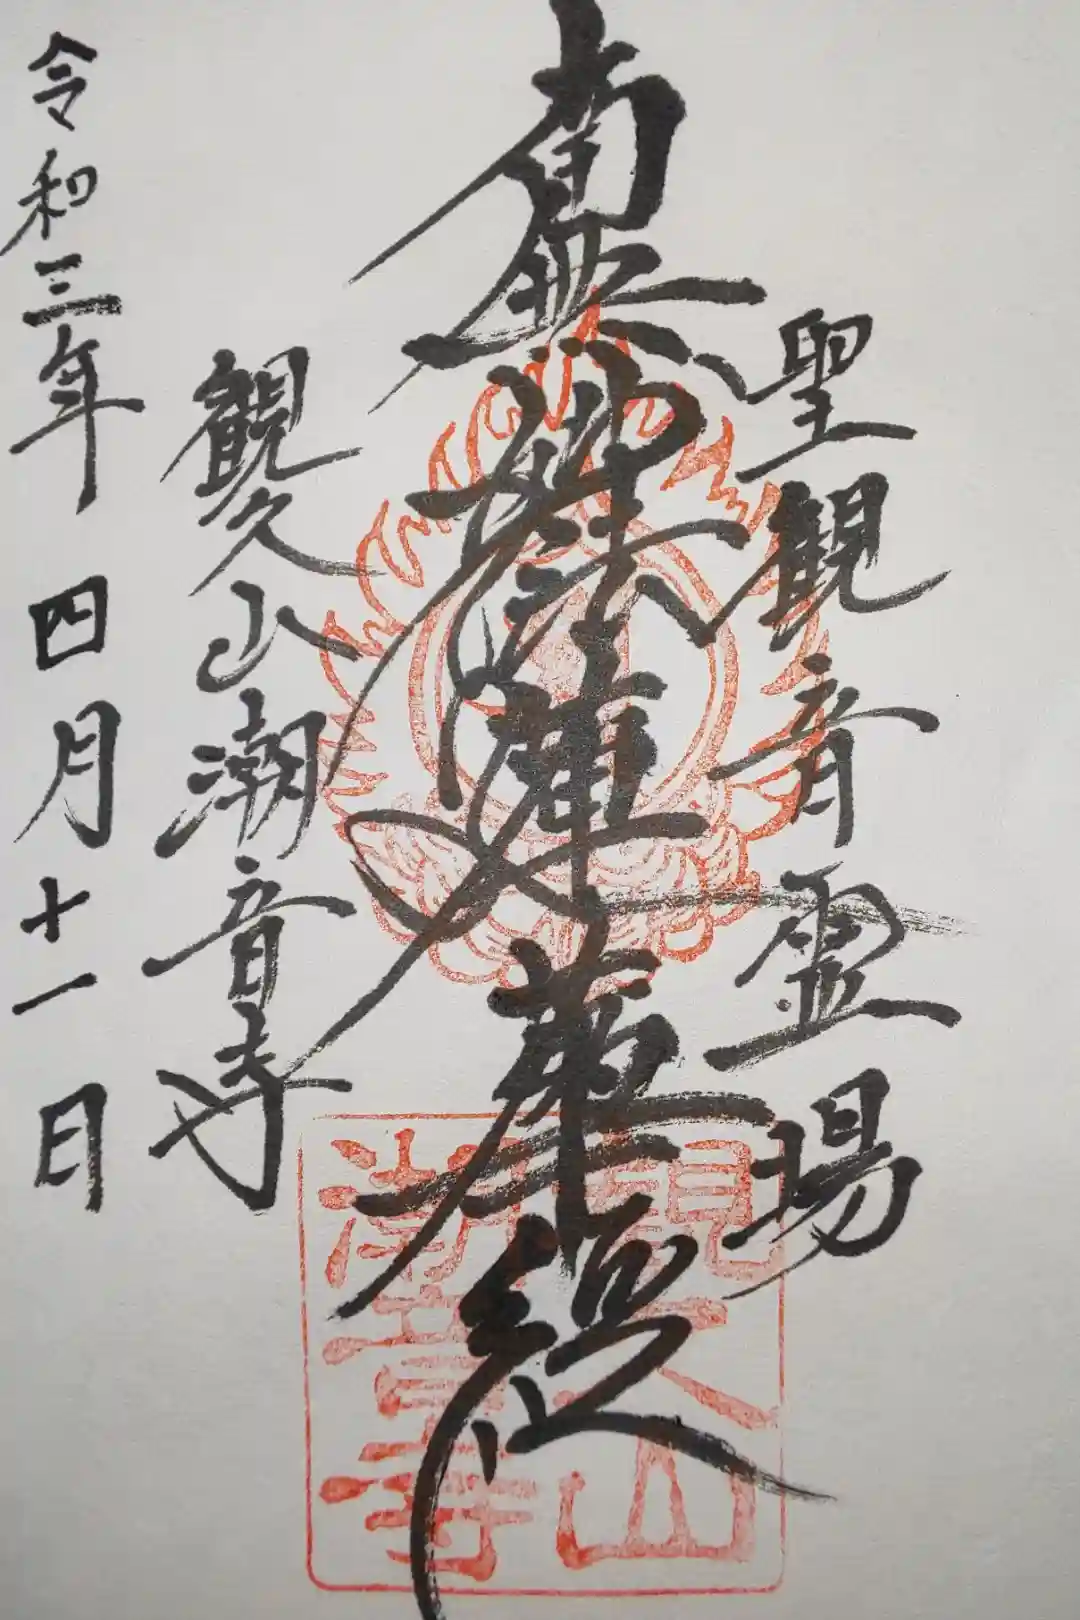 聖観音霊場
南無妙法蓮華経
観久山潮音寺
令和三年四月十一日
観久山
潮音寺